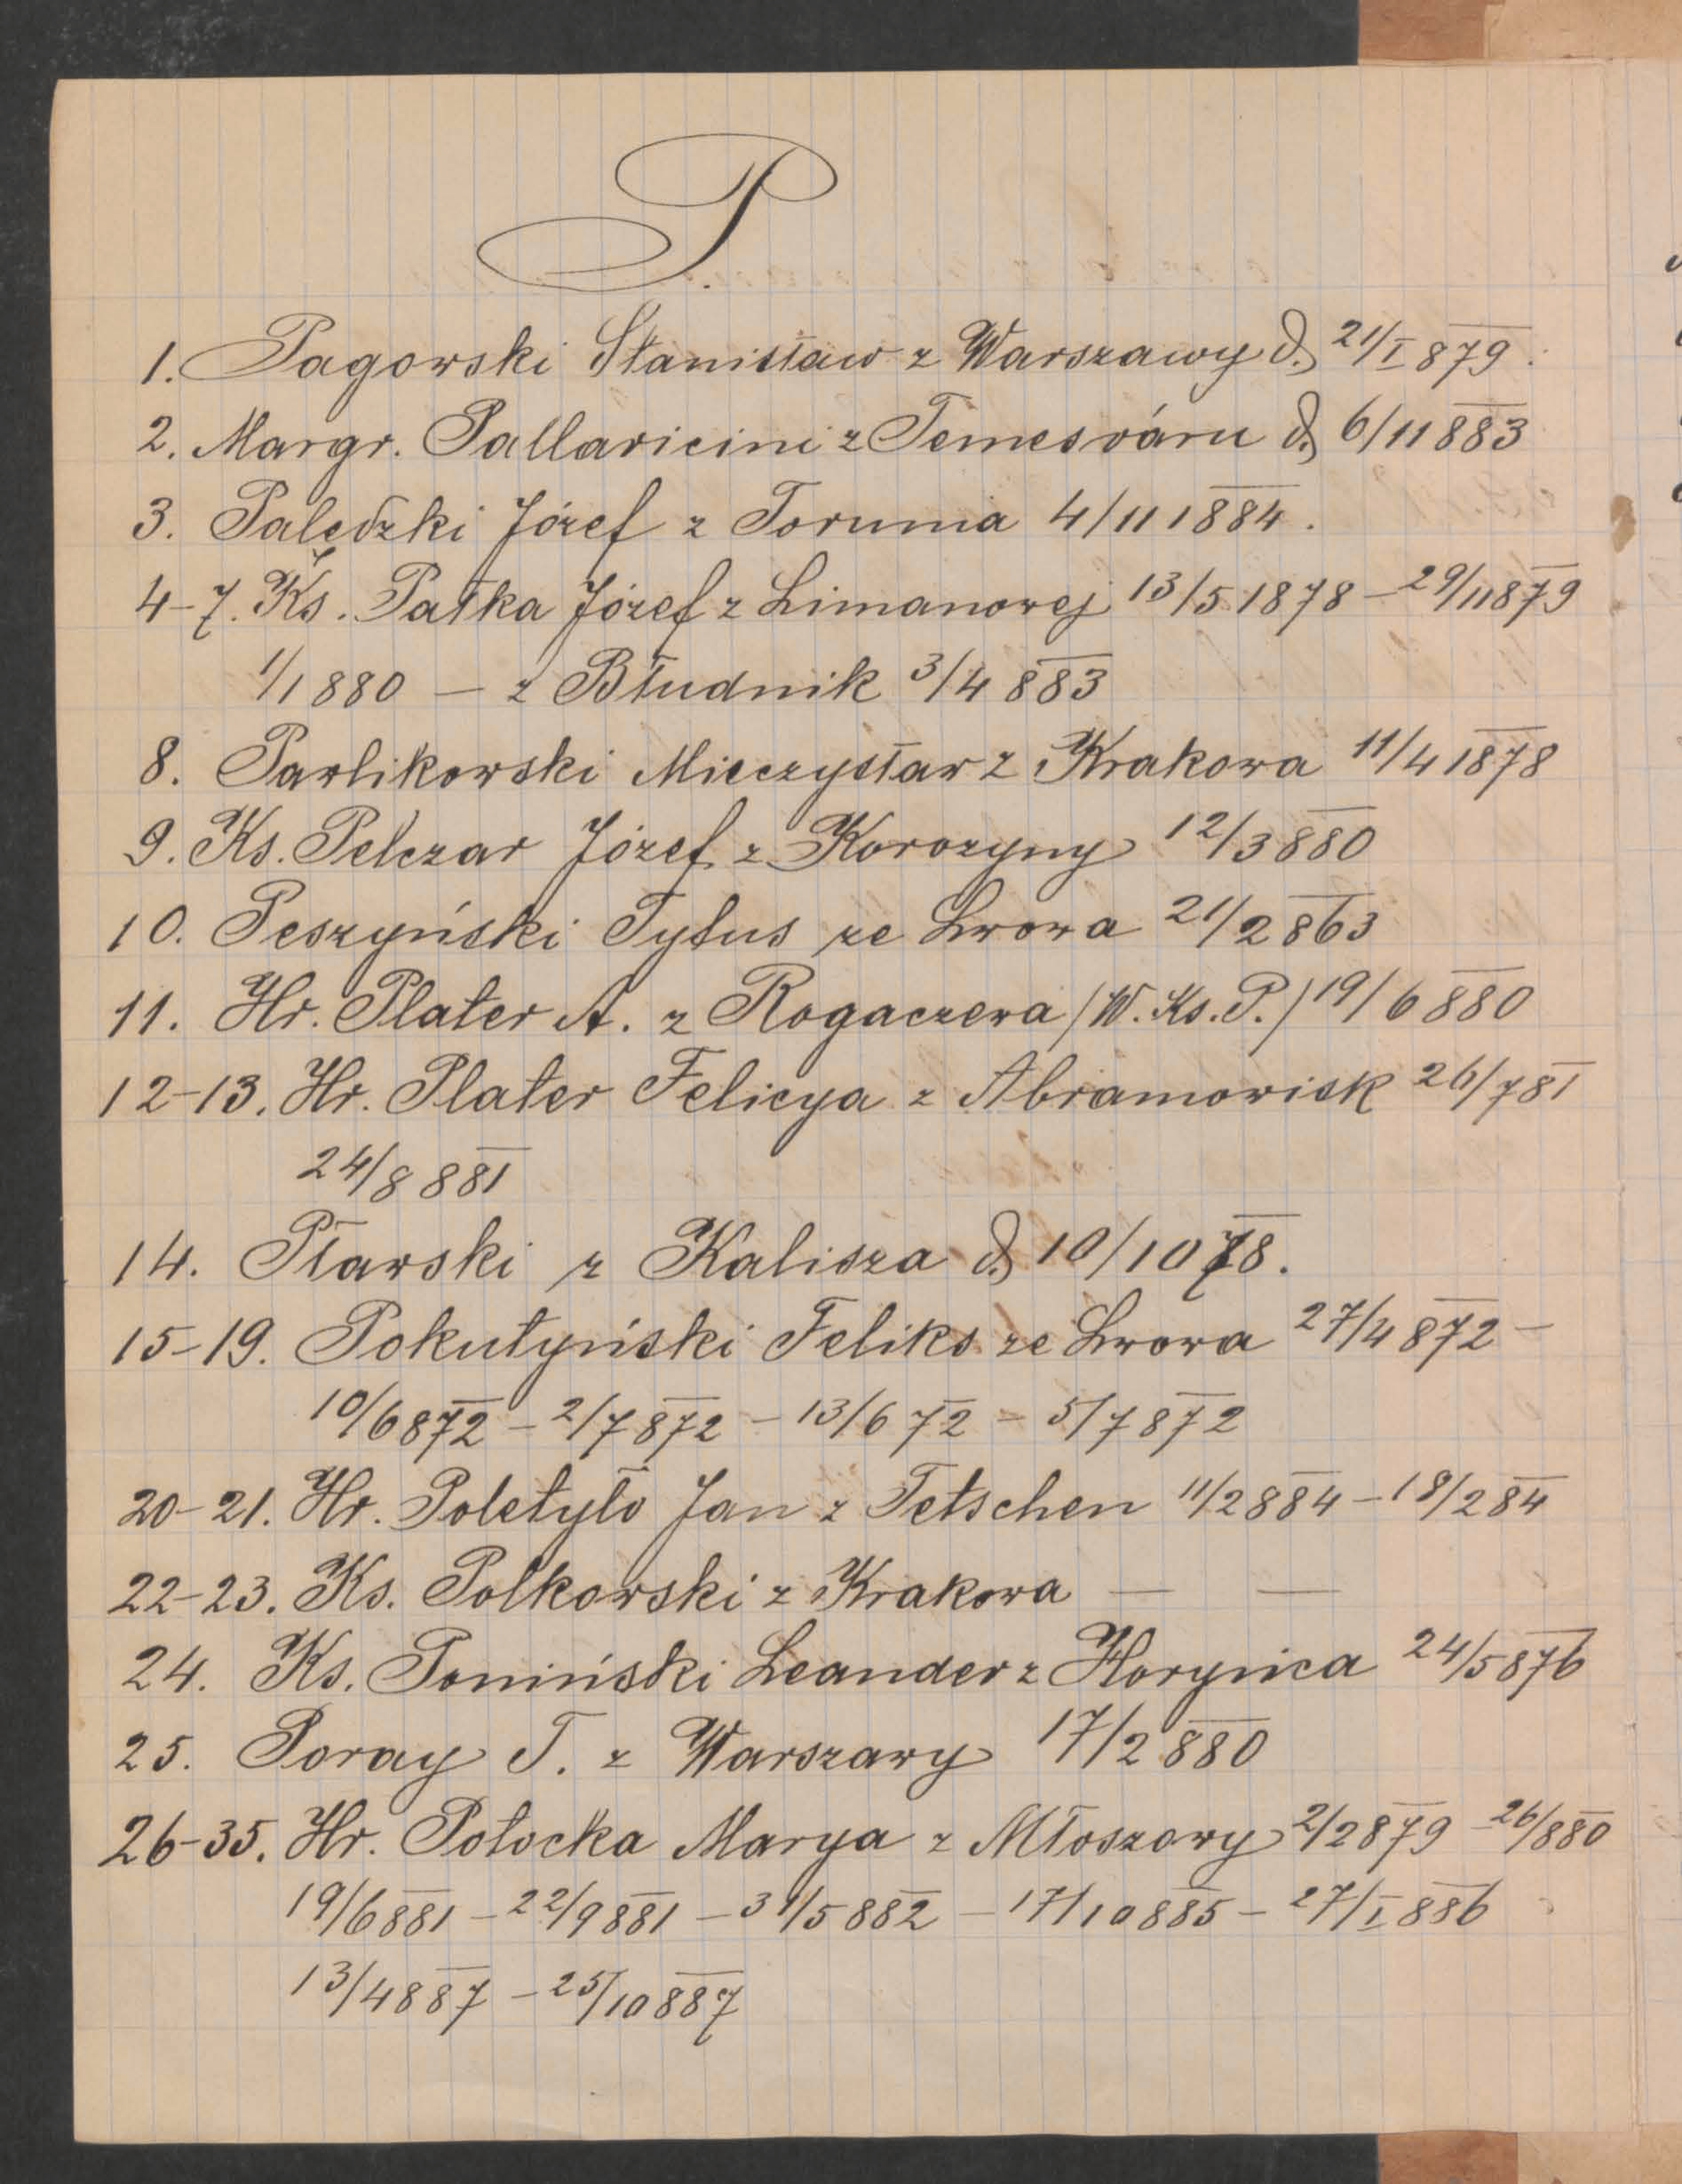 P.
1. Pagowski Stanisław z Warszawy d. 21/I 879.
2. Margr. Pallavicini z Temesváru d. 6/11 883
3. Palędzki Józef z Torunia 4/11 1884.
4-7. Ks. Pałka Józef z Limanowej 13/5 1878 - 29/11 879
1/1 880 - z Błudnik 3/4 883
8. Pawlikowski Mieczysław z Krakowa 11/4 1878
9. Ks. Pelczar Józef z Korczyny 12/3 880
10. Peszyński Tytus ze Lwowa 21/2 863
11. Hr. Plater A. z Rogaczewa /W. Ks. P./ 19/6 880
12-13. Hr. Plater Felicya z Abramowisk 26/7 81
24/8 881
14. Pławski z Kalisza d. 10/10 78.
15-19. Pokutyński Feliks ze Lwowa 27/4 872 -
10/6 872 - 2/7 872 - 13/6 72 - 5/7 872
20-21. Hr. Poletyło Jan z Tetschen 11/2 884 - 18/2 84
22-23. Ks. Polkowski z Krakowa — —
24. Ks. Poniński Leander z Horyńca 24/5 876
25. Poray T. z Warszawy 17/2 880
26-35. Hr. Potocka Marya z Młoszowy 2/2 879 - 26/880
19/6 881 - 22/9 881 - 31/5 882 - 17/10 885 - 27/I 886
13/4 887 - 25/10 887